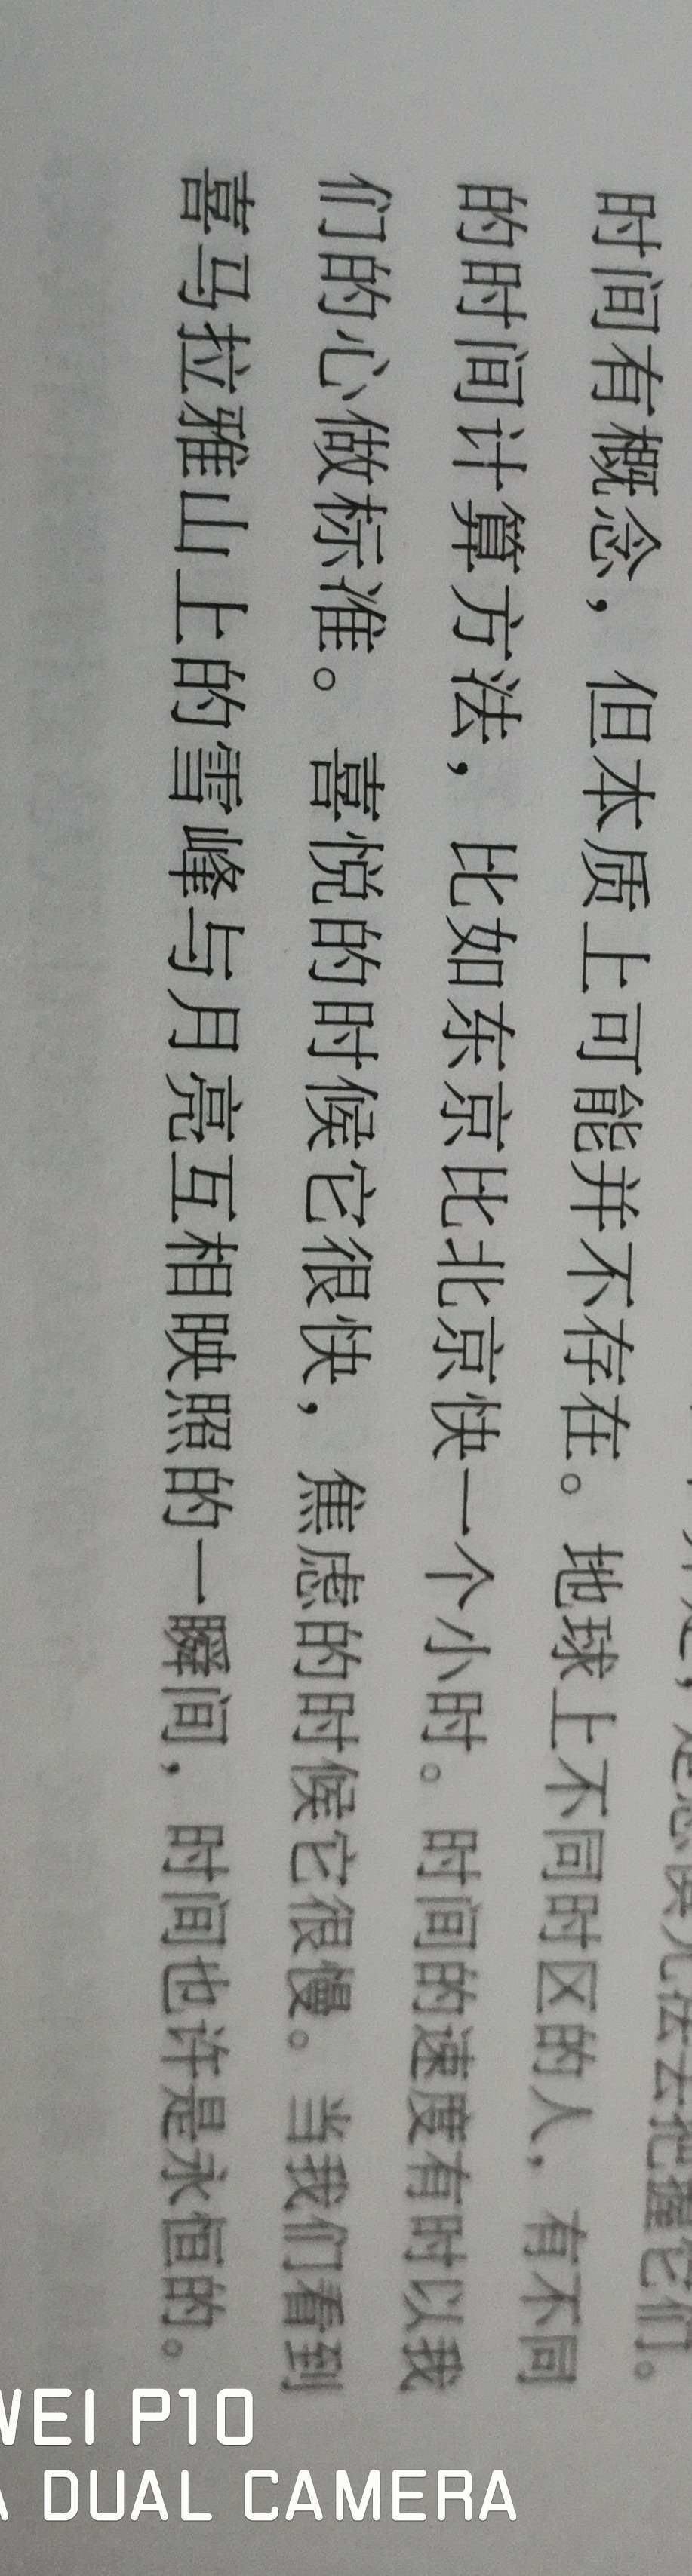 无法去把握它们。
时间有概念，但本质上可能并不存在。地球上不同时区的人，有不同
的时间计算方法，比如东京比北京快一个小时。时间的速度有时以我
们的心做标准。喜悦的时候它很快，焦虑的时候它很慢。当我们看到
喜马拉雅山上的雪峰与月亮互相映照的一瞬间，时间也许是永恒的。
WEI P10
A DUAL CAMERA